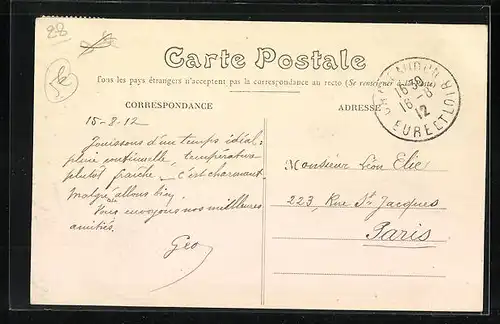 28
Carte Postale
Tous les pays étrangers n'acceptent pas la correspondance au recto (Se renseigner à la Poste)
CORRESPONDANCE
ADRESSE
CHATEAUDUN
16 30
16 - 8
12
EURE ET LOIR
15-8-12
Jouissons d'un temps idéal:
pluie continuelle, température
plutôt fraîche - c'est charmant.
Malgré ça allons bien
Vous envoyons nos meilleures
amitiés.
Geo
Monsieur Léon Elie
223, Rue St Jacques
Paris